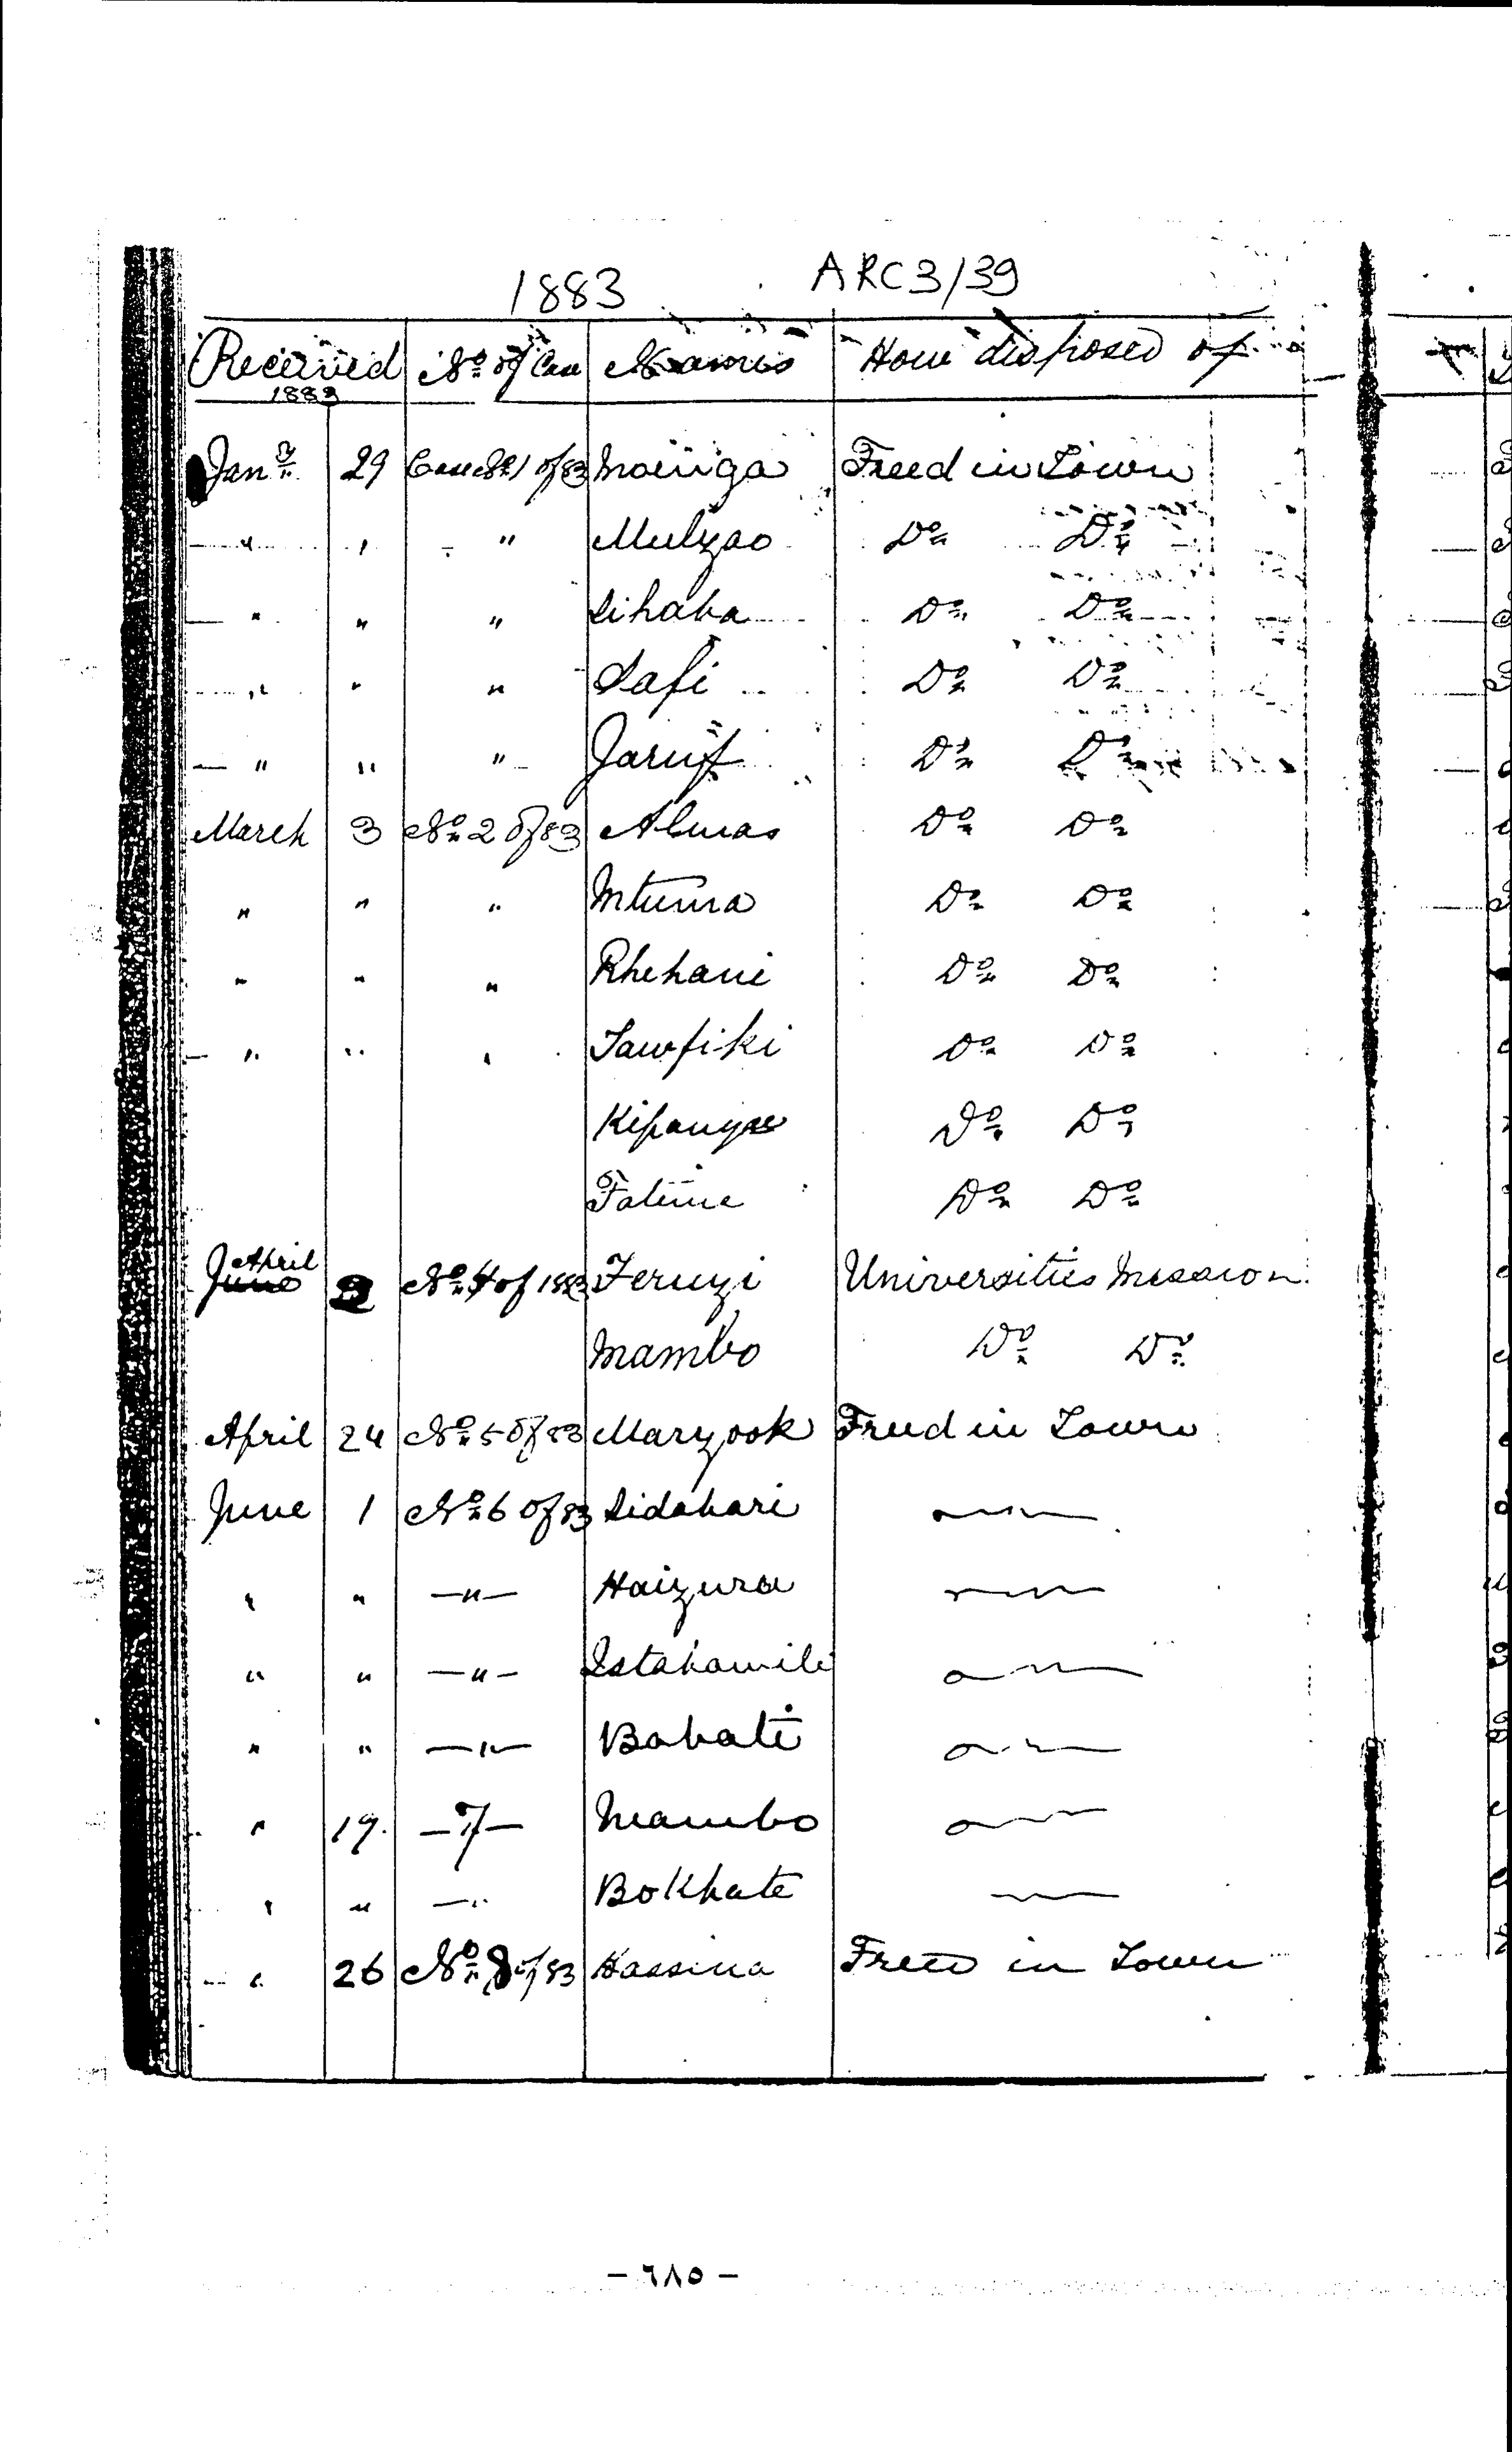 1883 ARC3/39
Received No of Case Names How disposed of
1883
Jany 29 Case No 1 of 83 Freed in Town
" " " Do Do
" " " Sihaba Do Do
" " " Safi Do Do
" " " Do Do
March 3 No 2 of 83 Almas Do Do
" " " Mtuma Do Do
" " " Rhehani Do Do
" " " Tawfiki Do Do
Do Do
Fatima Do Do
April
June No 4 of 1883 Feruzi Universities Mission
Mambo Do Do
April 24 No 5 of 83 Marzook Freed in Town
June 1 No 6 of 83 Sidahari
" " —"— Haizura
" " —"— Istahamili
" " —"— Babati
" 19. —7— Mambo
" " —" Bokhate
" 26 No 8 of 83 Hassina Freed in Town
- ٦٨٥ -